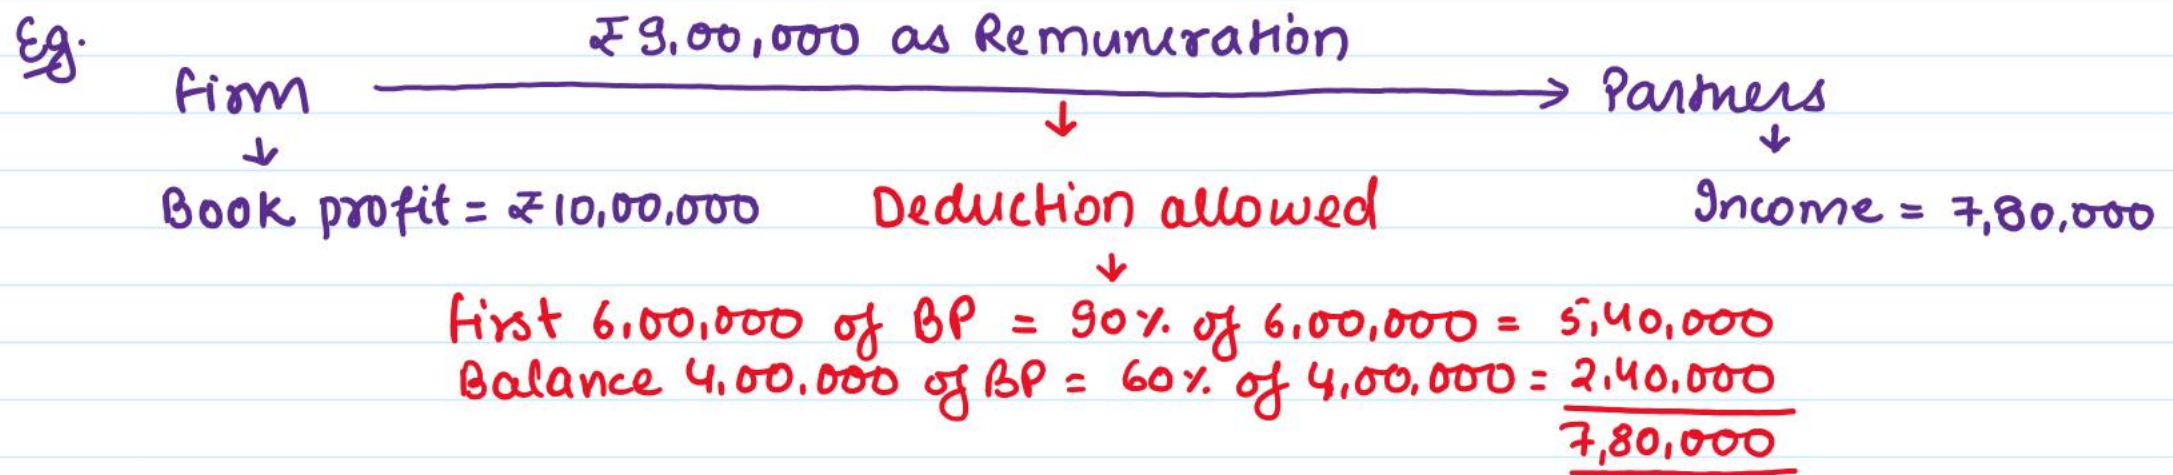 Eg.
₹9,00,000 as Remuneration
firm → Partners
↓ ↓ ↓
Book profit = ₹10,00,000 Deduction allowed Income = 7,80,000
↓
first 6,00,000 of BP = 90% of 6,00,000 = 5,40,000
Balance 4,00,000 of BP = 60% of 4,00,000 = 2,40,000
7,80,000